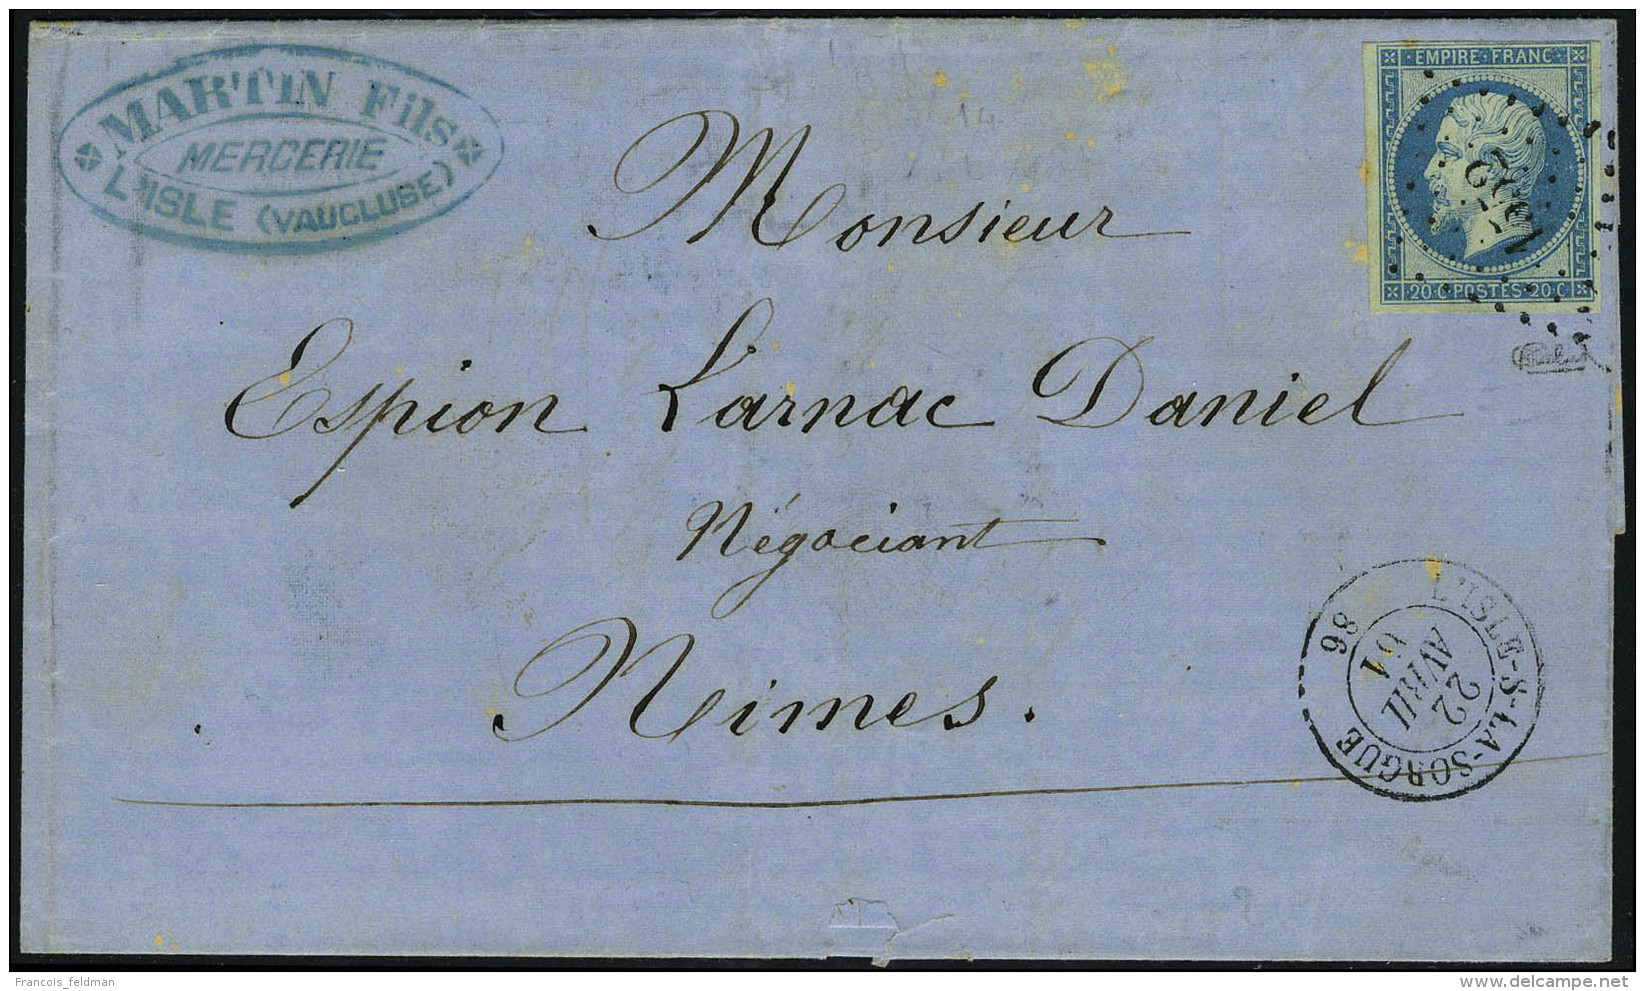 MARTIN Fils
MERCERIE
L'ISLE (VAUCLUSE)
EMPIRE·FRANC
20·C·POSTES·20·C
14
Monsieur
Espion Larnac Daniel
Négociant
Nimes.
L'ISLE-S-LA-SORGUE
22
AVRIL
61
86
Francois_feldman
delcampe.net